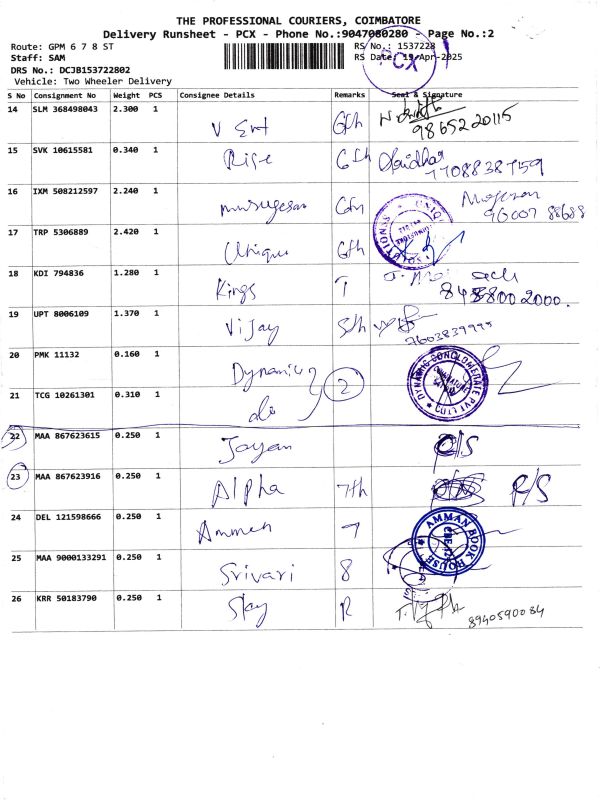 THE PROFESSIONAL COURIERS, COIMBATORE
Delivery Runsheet - PCX - Phone No.:9047080280 - Page No.:2
Route: GPM 6 7 8 ST
RS No.: 1537228
Staff: SAM
RS Date: 19-Apr-2025
PCX
DRS No.: DCJB153722802
Vehicle: Two Wheeler Delivery
S No Consignment No Weight PCS Consignee Details Remarks Seal & Signature
14 SLM 368498043 2.300 1 V Ent 6th
9865220115
15 SVK 10615581 0.340 1 Rise 6th
7708838759
16 IXM 508212597 2.240 1 murugesan 6th Murugesan
96007 88688
17 TRP 5306889 2.420 1 Unique 6th
18 KDI 794836 1.280 1 Kings 7
19 UPT 8006109 1.370 1 Vijay 5th
7603839995
20 PMK 11132 0.160 1 Dynamic
DYNAMIC CONGLOMERATE PVT LTD
21 TCG 10261301 0.310 1 do 2
22 MAA 867623615 0.250 1 Jayam O/S
23 MAA 867623916 0.250 1 Alpha 7th P/S
24 DEL 121598666 0.250 1 Ammen 7
AMMAN BOOK HOUSE
25 MAA 9000133291 0.250 1 Srivari 8
26 KRR 50183790 0.250 1 Sky R
8940590084